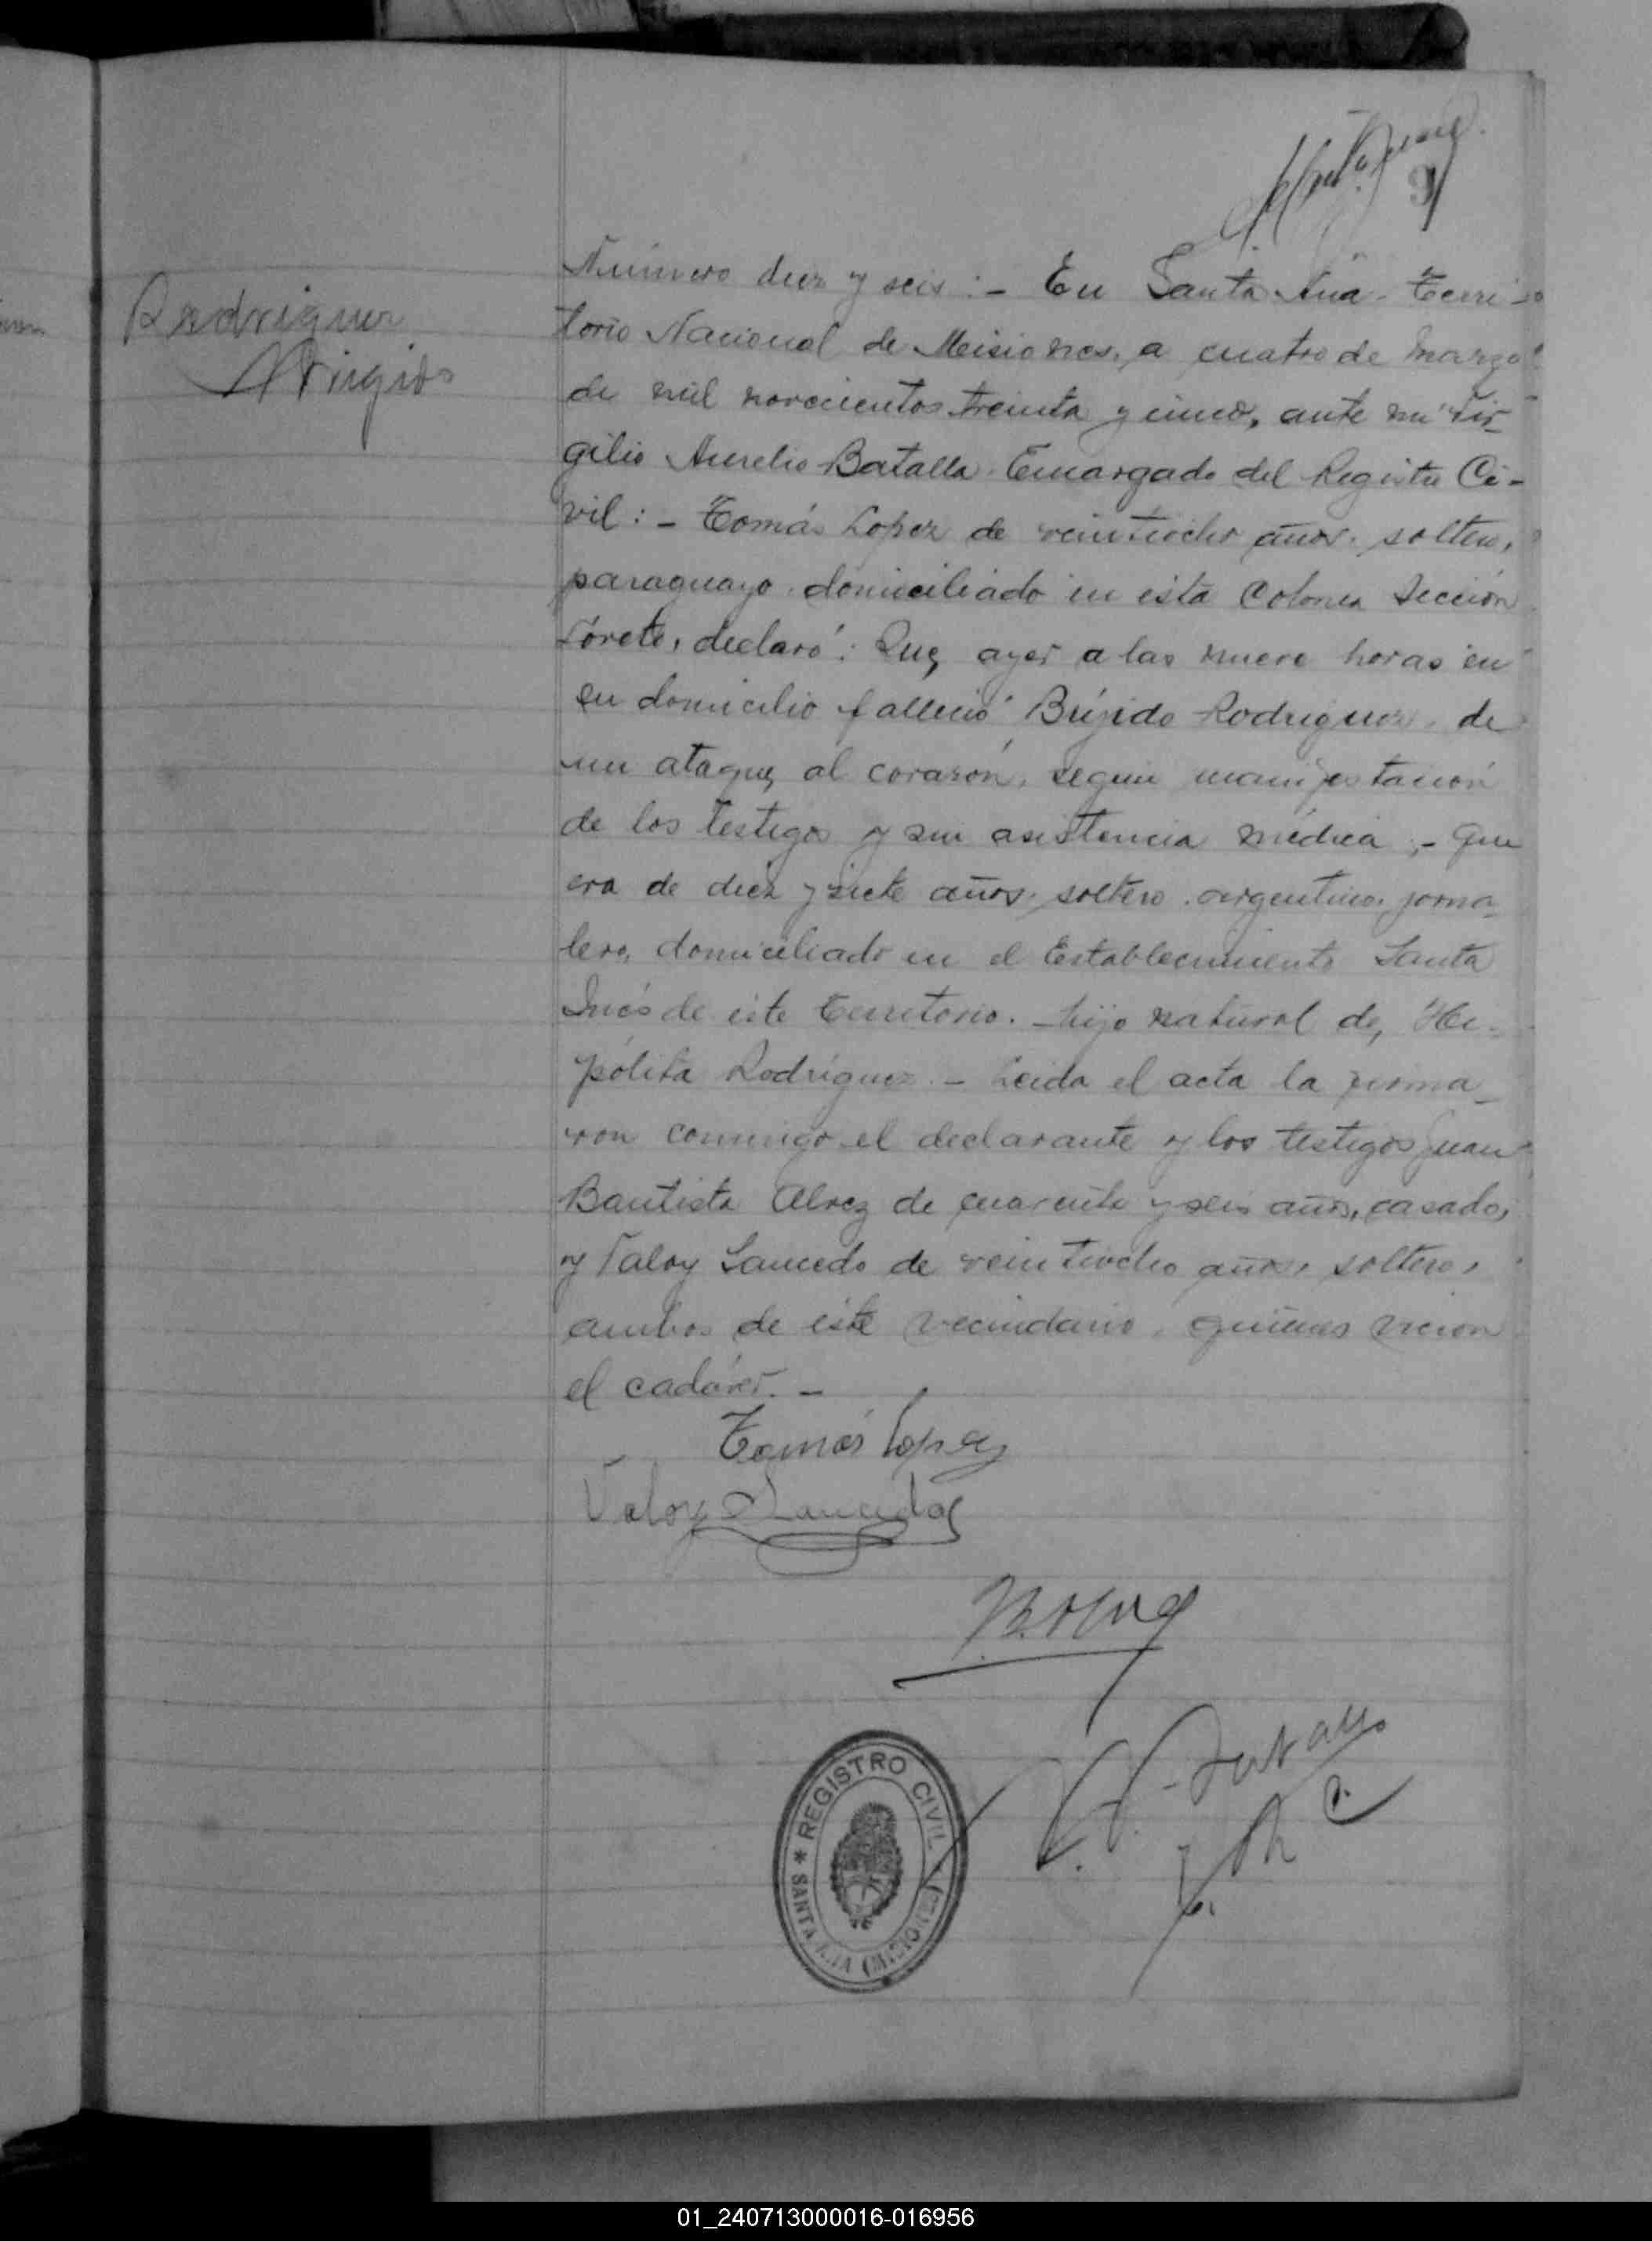 9
Rodriguez
Número diez y seis :- En Santa Ana Terri-
torio Nacional de Misiones, a cuatro de marzo
de mil novecientos treinta y cinco, ante mi Vir-
gilio Aurelio Batalla Encargado del Registro Ci-
vil :- Tomás Lopez de veintiocho años, soltero,
paraguayo, domiciliado en esta Colonia Sección
Loreto, declaró: Que, ayer a las nueve horas en
su domicilio falleció Brígido Rodriguez, de
un ataque al corazón, según manifestación
de los testigos y sin asistencia médica ;- que
era de diez y siete años, soltero, argentino, jorna-
lero, domiciliado en el Establecimiento Santa
Inés de este territorio. - hijo natural de, Hi-
pólita Rodriguez. - Leida el acta la firma-
ron conmigo el declarante y los testigos Juan
Bautista Alvez de cuarenta y seis años, casado,
y Valoy Saucedo de veintiocho años, soltero,
ambos de este vecindario, quienes vieron
el cadáver. -
Tomás Lopez
Valoy Saucedo
REGISTRO CIVIL
SANTA ANA (MISIONES)
01_240713000016-016956